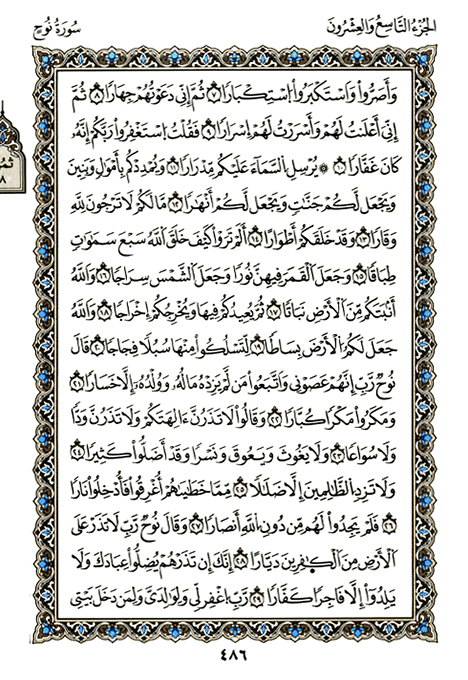 الجزء التاسع والعشرون
سورة نوح
وَأَصَرُّوا۟ وَاسْتَكْبَرُوا۟ اسْتِكْبَارًا ٧ ثُمَّ إِنِّي دَعَوْتُهُمْ جِهَارًا ٨ ثُمَّ
إِنِّي أَعْلَنتُ لَهُمْ وَأَسْرَرْتُ لَهُمْ إِسْرَارًا ٩ فَقُلْتُ اسْتَغْفِرُوا۟ رَبَّكُمْ إِنَّهُ
كَانَ غَفَّارًا ١٠ ۞ يُرْسِلِ السَّمَآءَ عَلَيْكُم مِّدْرَارًا ١١ وَيُمْدِدْكُم بِأَمْوَٰلٍ وَبَنِينَ
وَيَجْعَل لَّكُمْ جَنَّٰتٍ وَيَجْعَل لَّكُمْ أَنْهَٰرًا ١٢ مَّا لَكُمْ لَا تَرْجُونَ لِلَّهِ
وَقَارًا ١٣ وَقَدْ خَلَقَكُمْ أَطْوَارًا ١٤ أَلَمْ تَرَوْا۟ كَيْفَ خَلَقَ اللَّهُ سَبْعَ سَمَٰوَٰتٍ
طِبَاقًا ١٥ وَجَعَلَ الْقَمَرَ فِيهِنَّ نُورًا وَجَعَلَ الشَّمْسَ سِرَاجًا ١٦ وَاللَّهُ
أَنۢبَتَكُم مِّنَ الْأَرْضِ نَبَاتًا ١٧ ثُمَّ يُعِيدُكُمْ فِيهَا وَيُخْرِجُكُمْ إِخْرَاجًا ١٨ وَاللَّهُ
جَعَلَ لَكُمُ الْأَرْضَ بِسَاطًا ١٩ لِّتَسْلُكُوا۟ مِنْهَا سُبُلًا فِجَاجًا ٢٠ قَالَ
نُوحٌ رَّبِّ إِنَّهُمْ عَصَوْنِي وَاتَّبَعُوا۟ مَن لَّمْ يَزِدْهُ مَالُهُ وَوُلْدُهُ إِلَّا خَسَارًا ٢١
وَمَكَرُوا۟ مَكْرًا كُبَّارًا ٢٢ وَقَالُوا۟ لَا تَذَرُنَّ ءَالِهَتَكُمْ وَلَا تَذَرُنَّ وَدًّا
وَلَا سُوَاعًا ٢٣ وَلَا يَغُوثَ وَيَعُوقَ وَنَسْرًا وَقَدْ أَضَلُّوا۟ كَثِيرًا ٢٤
وَلَا تَزِدِ الظَّٰلِمِينَ إِلَّا ضَلَٰلًا ٢٥ مِّمَّا خَطَٰيَٰهُمْ أُغْرِقُوا۟ فَأُدْخِلُوا۟ نَارًا
٢٦ فَلَمْ يَجِدُوا۟ لَهُم مِّن دُونِ اللَّهِ أَنصَارًا ٢٧ وَقَالَ نُوحٌ رَّبِّ لَا تَذَرْ عَلَى
الْأَرْضِ مِنَ الْكَٰفِرِينَ دَيَّارًا ٢٨ إِنَّكَ إِن تَذَرْهُمْ يُضِلُّوا۟ عِبَادَكَ وَلَا
يَلِدُوا۟ إِلَّا فَاجِرًا كَفَّارًا ٢٩ رَّبِّ اغْفِرْ لِي وَلِوَٰلِدَيَّ وَلِمَن دَخَلَ بَيْتِي
٤٨٦